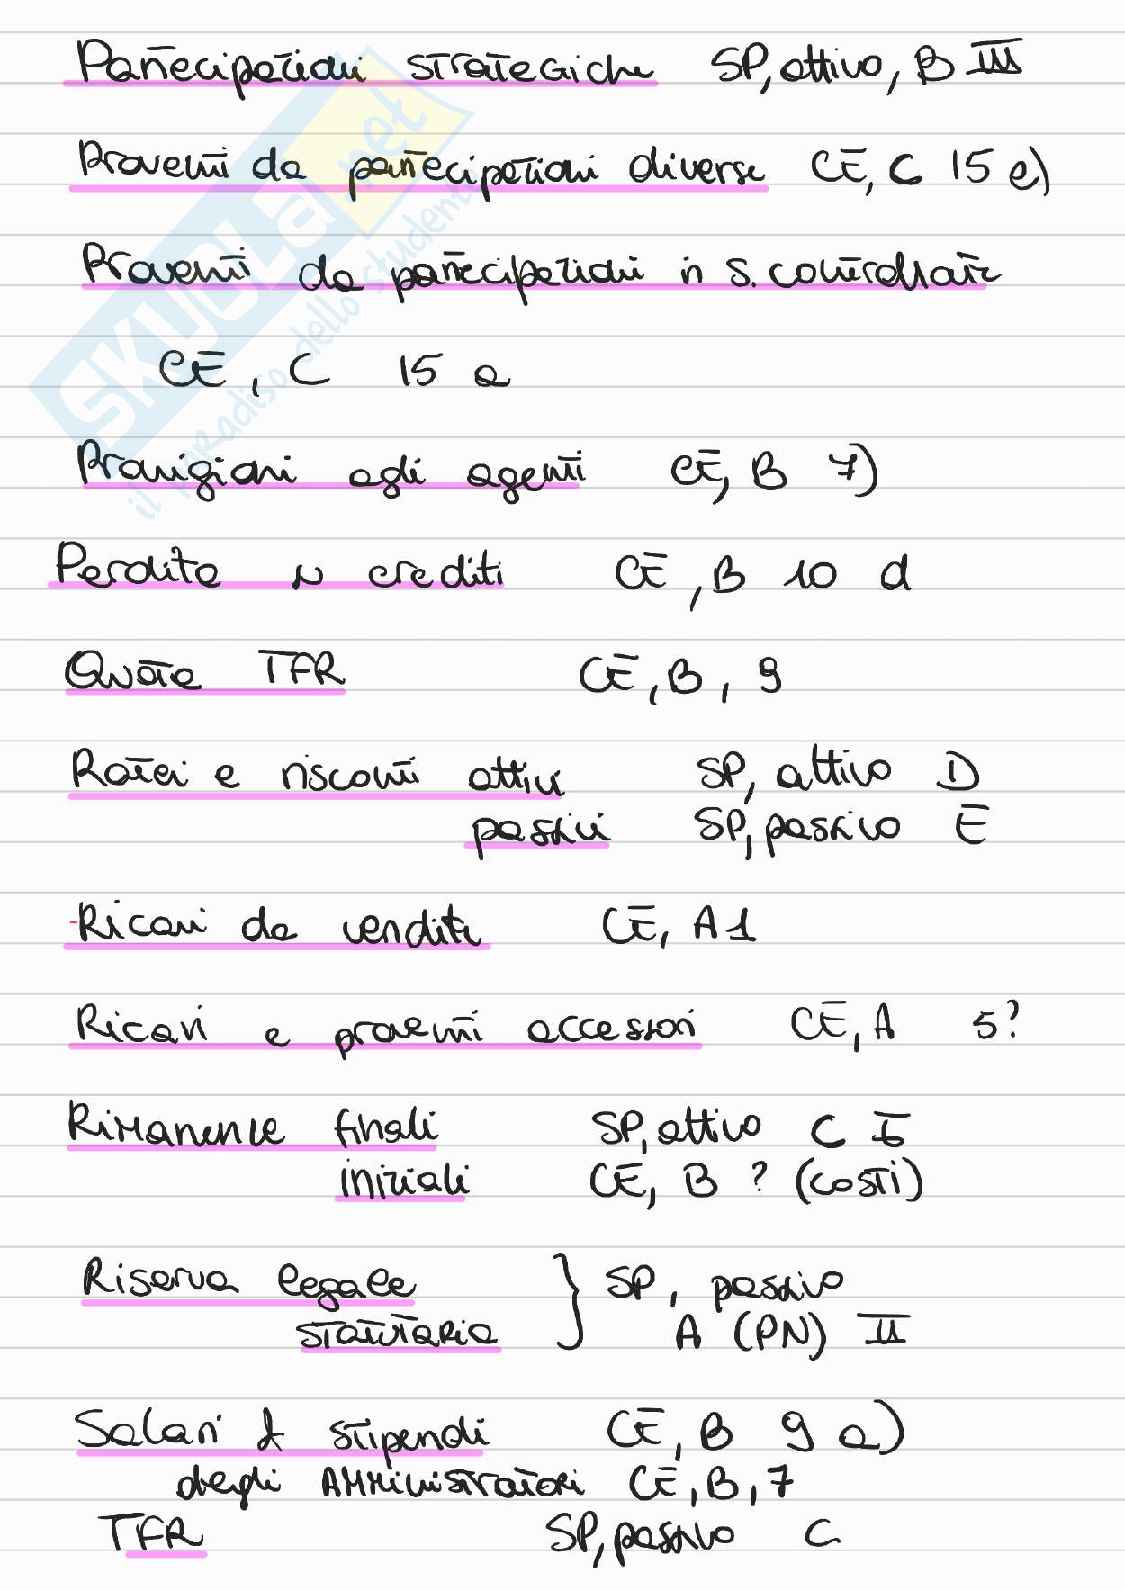 Partecipazioni strategiche SP, attivo, B III
Proventi da partecipazioni diverse CE, C 15 e)
Proventi da partecipazioni in s. controllate
CE, C 15 a
Provvigioni agli agenti CE, B 7)
Perdite su crediti CE, B 10 d
Quota TFR CE, B, 9
Ratei e risconti attivi SP, attivo D
passivi SP, passivo E
-Ricavi da vendite CE, A1
Ricavi e proventi accessori CE, A 5?
Rimanenze finali SP, attivo C I
iniziali CE, B ? (costi)
Riserva legale } SP, passivo
statutaria A (PN) II
Salari & stipendi CE, B 9 a)
degli AMMinistratori CE, B, 7
TFR SP, passivo C
SKUOLA.net
il paradiso dello studente